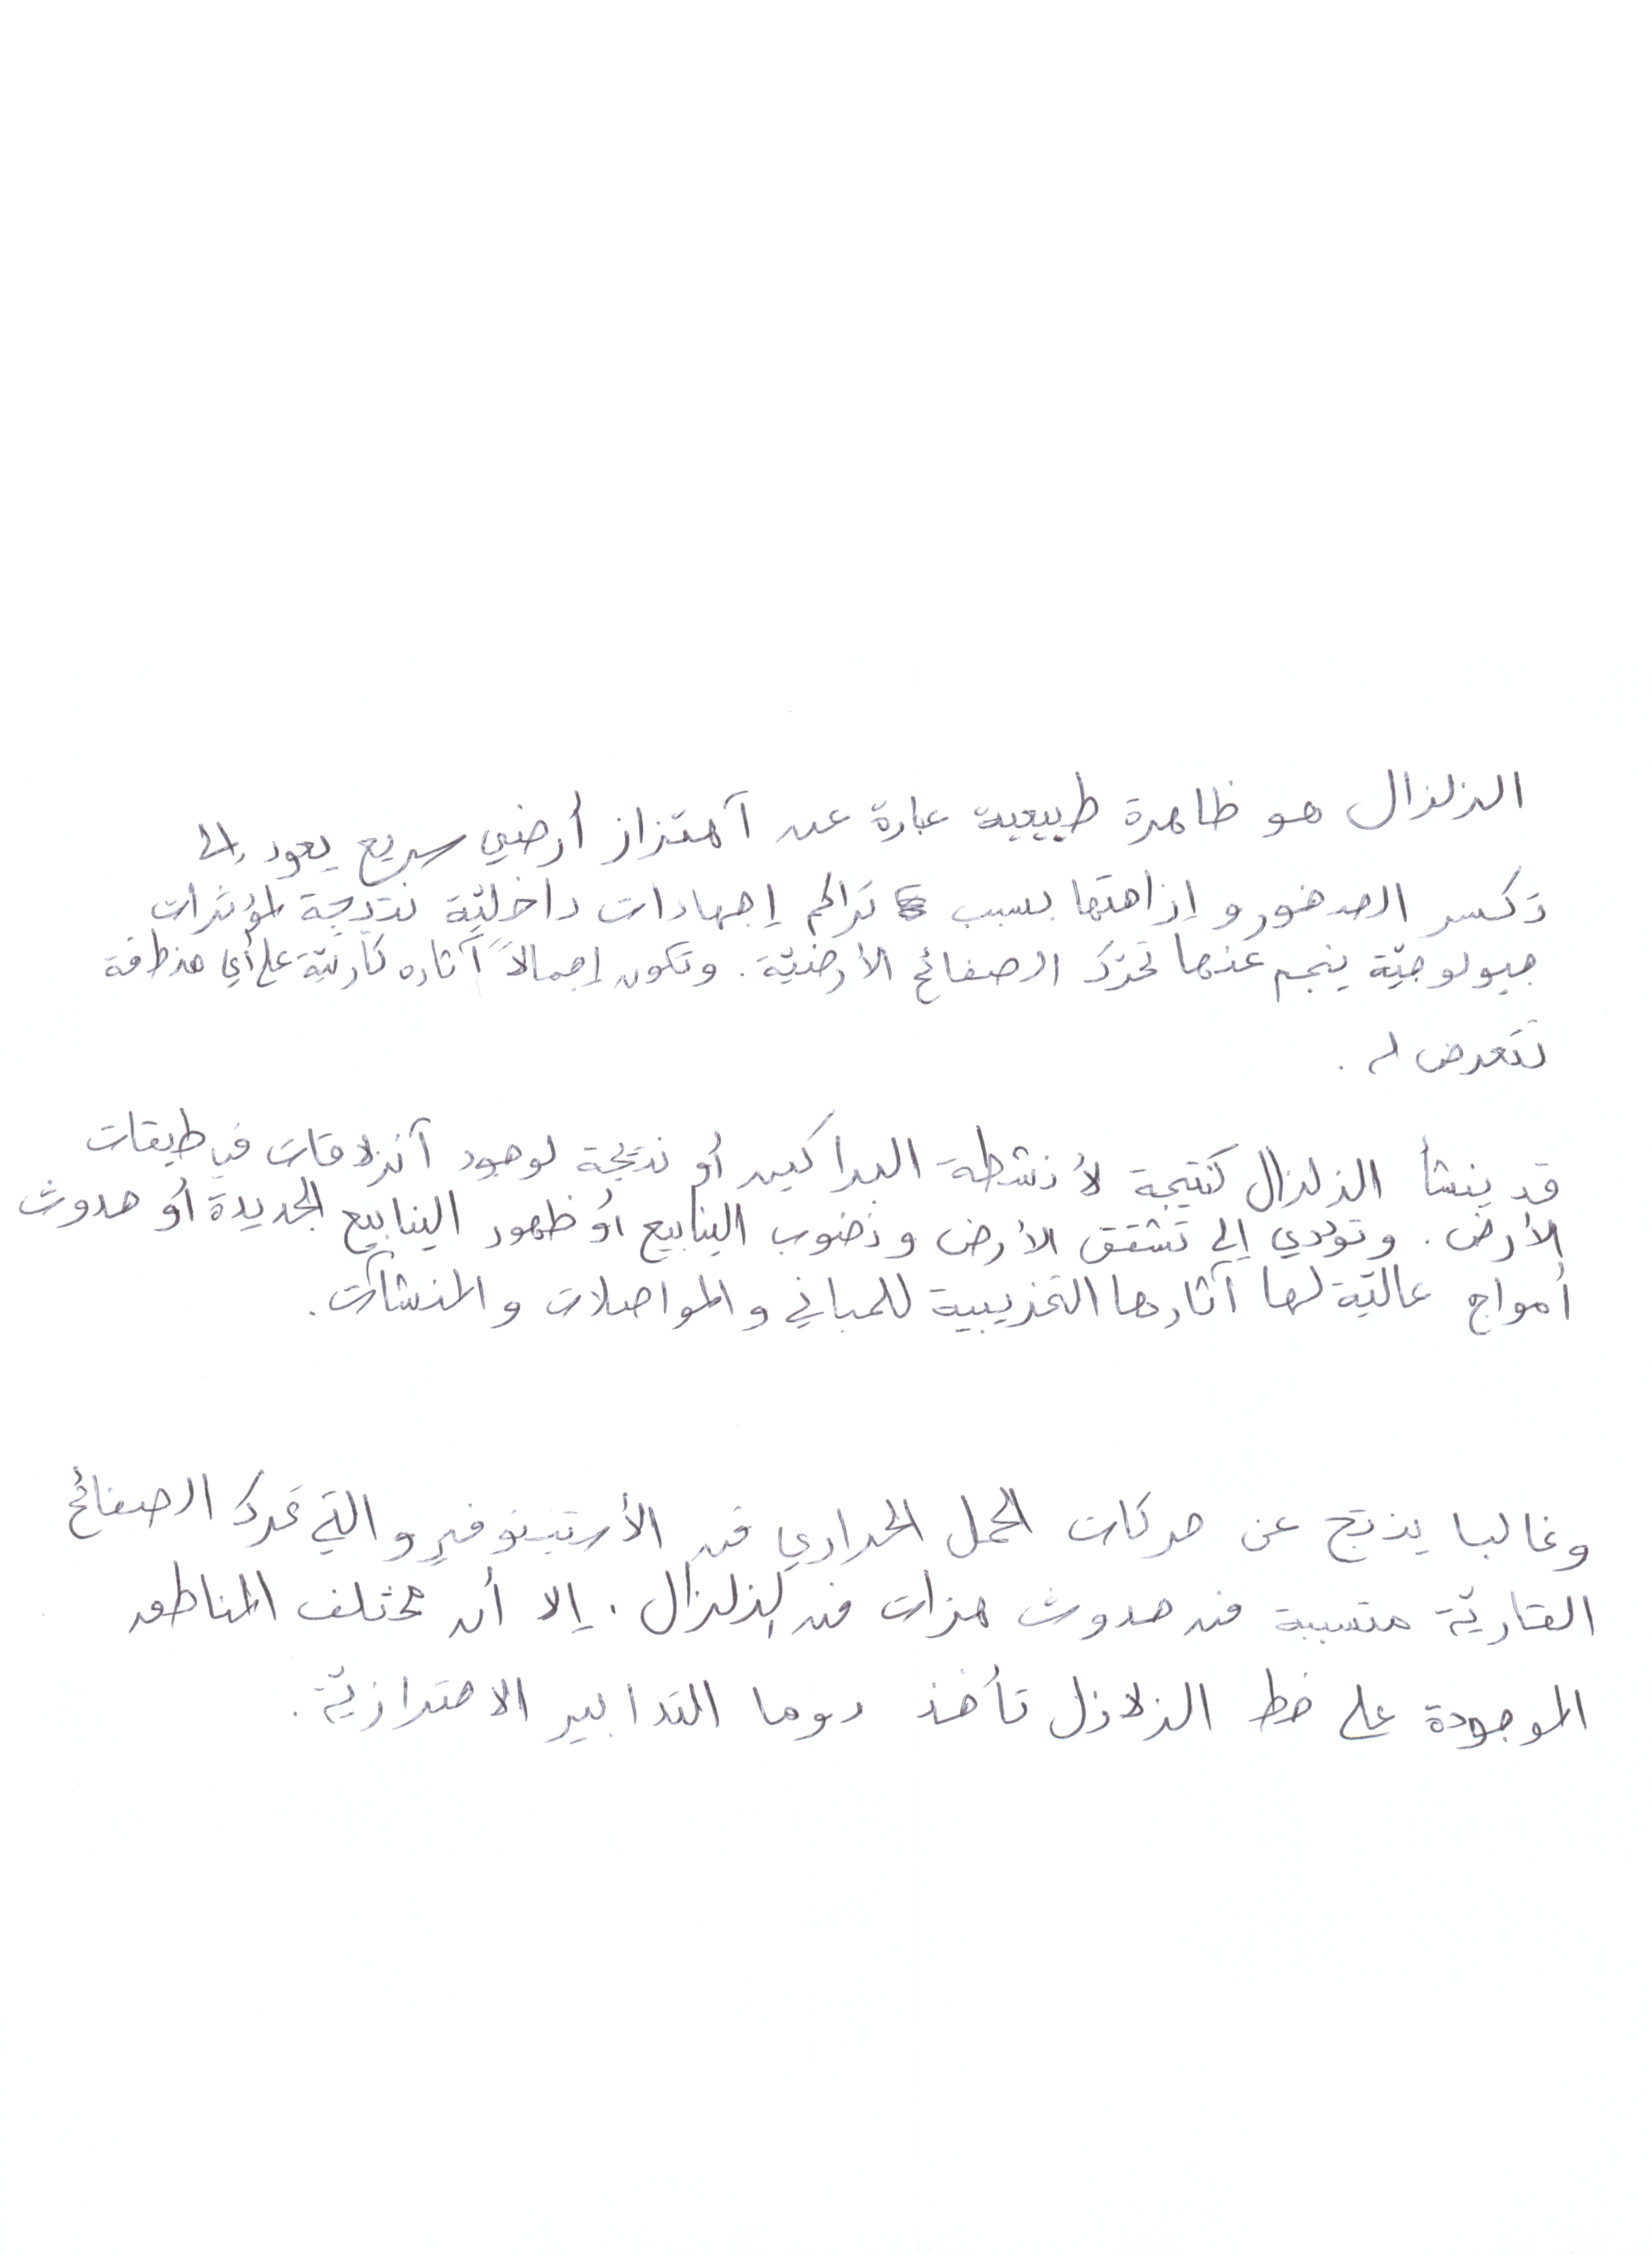 الزلزال هو ظاهرة طبيعية عبارة عن آهتزاز أرضي سريع يعود إلى
تكسر الصخور و إزاحتها بسبب تراكم إجهادات داخليّة نتيجة لمؤثرات
جيولوجيّة ينجم عنها تحرّك الصفائح الأرضيّة. وتكون إجمالاً آثاره كارثيّة على أي منطقة
تتعرض له.
قد ينشأ الزلزال كنتيجة لأنشطة البراكين أو نتيجة لوجود آنزلاقات في طبقات
الأرض. وتؤدي إلى تشقق الأرض و نضوب الينابيع أو ظهور الينابيع الجديدة أو حدوث
أمواج عاليّة لها آثارها التخريبية للمباني و المواصلات و المنشآت.
وغالبا ينتج عن حركات الحمل الحراري في الأستينوفير و التي تحرك الصفائح
القاريّة متسببة في حدوث هزات في الزلزال. إلا أن مختلف المناطق
الموجودة على خط الزلازل تأخذ دوما التدابير الاحترازيّة.